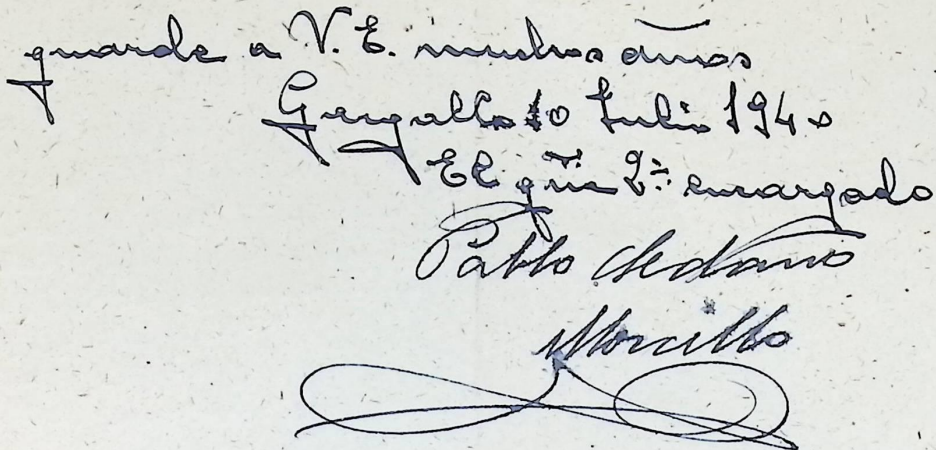 guarde a V. E. muchos años
10 Julio 1940
El 2º encargado
Pablo Sedano
Morcillo